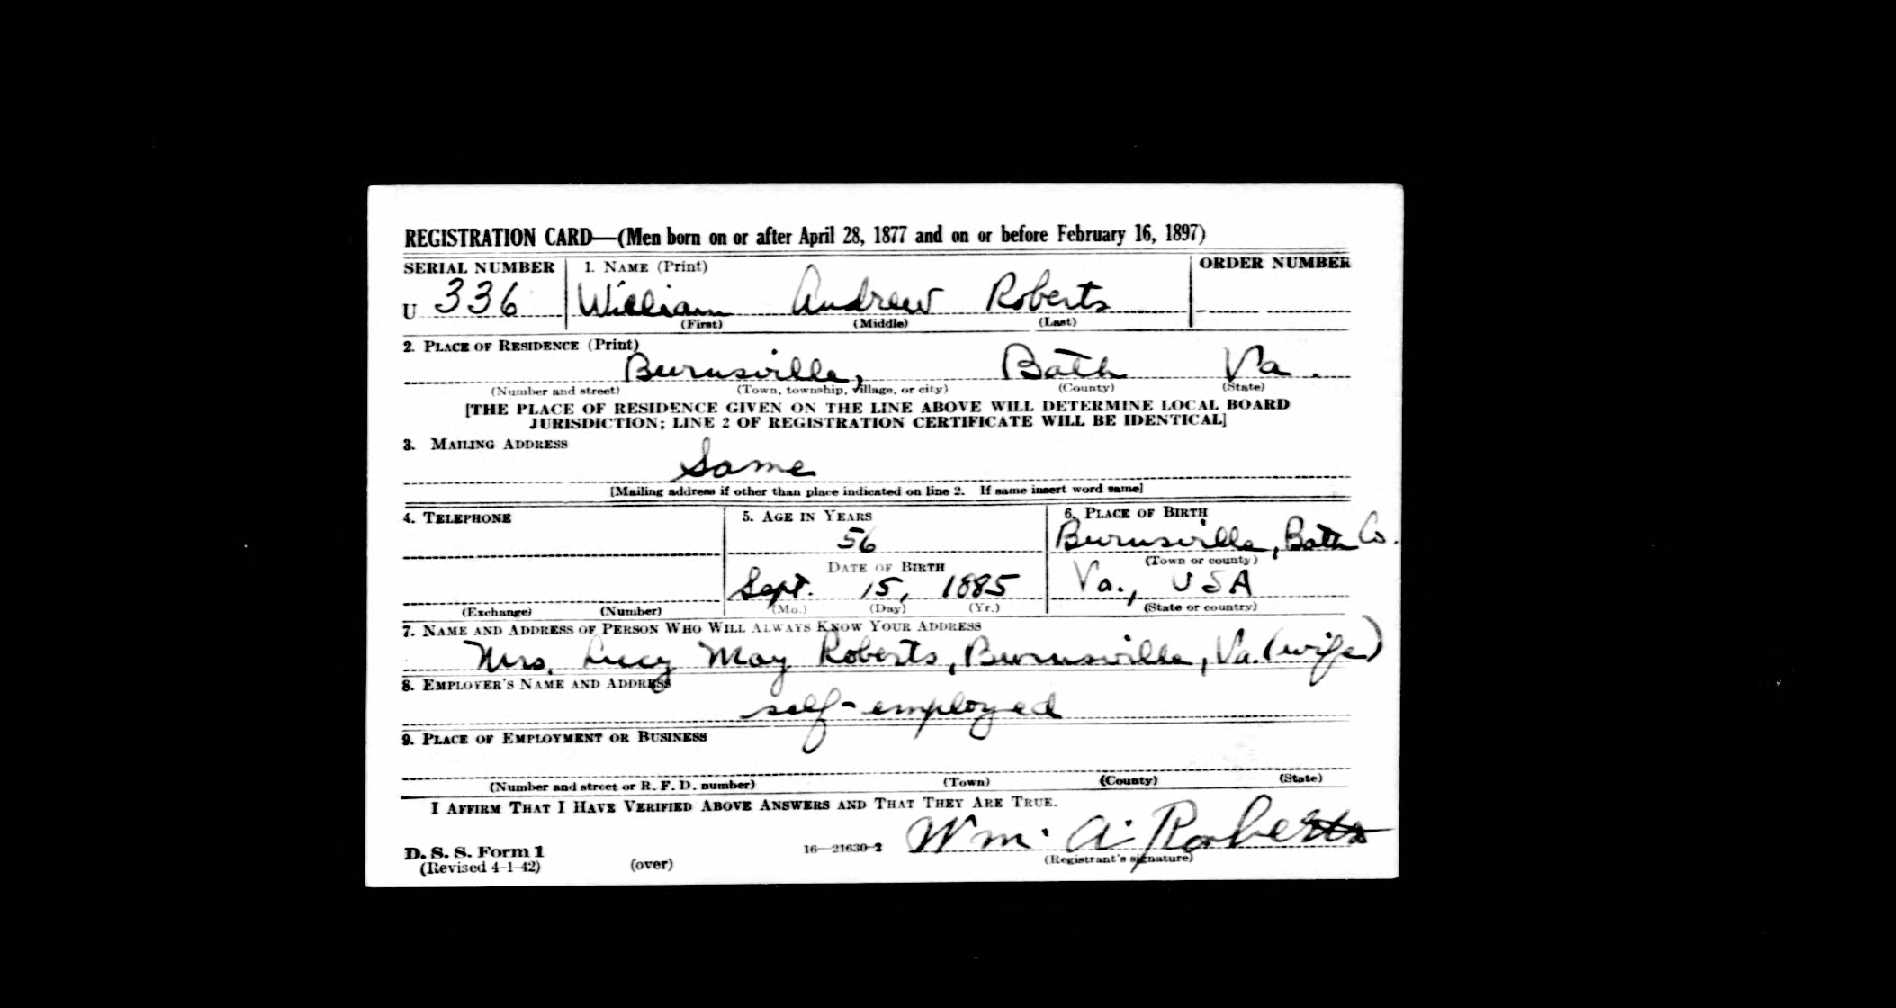 REGISTRATION CARD—(Men born on or after April 28, 1877 and on or before February 16, 1897)
SERIAL NUMBER 1. NAME (Print) ORDER NUMBER
U 336 William Andrew Roberts
(First) (Middle) (Last)
2. PLACE OF RESIDENCE (Print)
Burnsville, Bath Va.
(Number and street) (Town, township, village, or city) (County) (State)
[THE PLACE OF RESIDENCE GIVEN ON THE LINE ABOVE WILL DETERMINE LOCAL BOARD
JURISDICTION; LINE 2 OF REGISTRATION CERTIFICATE WILL BE IDENTICAL]
3. MAILING ADDRESS
Same
[Mailing address if other than place indicated on line 2. If same insert word same]
4. TELEPHONE 5. AGE IN YEARS 6. PLACE OF BIRTH
56 Burnsville, Bath Co.
DATE OF BIRTH (Town or county)
Sept. 15, 1885 Va., USA
(Exchange) (Number) (Mo.) (Day) (Yr.) (State or country)
7. NAME AND ADDRESS OF PERSON WHO WILL ALWAYS KNOW YOUR ADDRESS
Mrs. Lucy May Roberts, Burnsville, Va. (wife)
8. EMPLOYER'S NAME AND ADDRESS
self-employed
9. PLACE OF EMPLOYMENT OR BUSINESS
(Number and street or R. F. D. number) (Town) (County) (State)
I AFFIRM THAT I HAVE VERIFIED ABOVE ANSWERS AND THAT THEY ARE TRUE.
D. S. S. Form 1 16—21630-2 Wm. A. Roberts
(Revised 4-1-42) (over) (Registrant's signature)